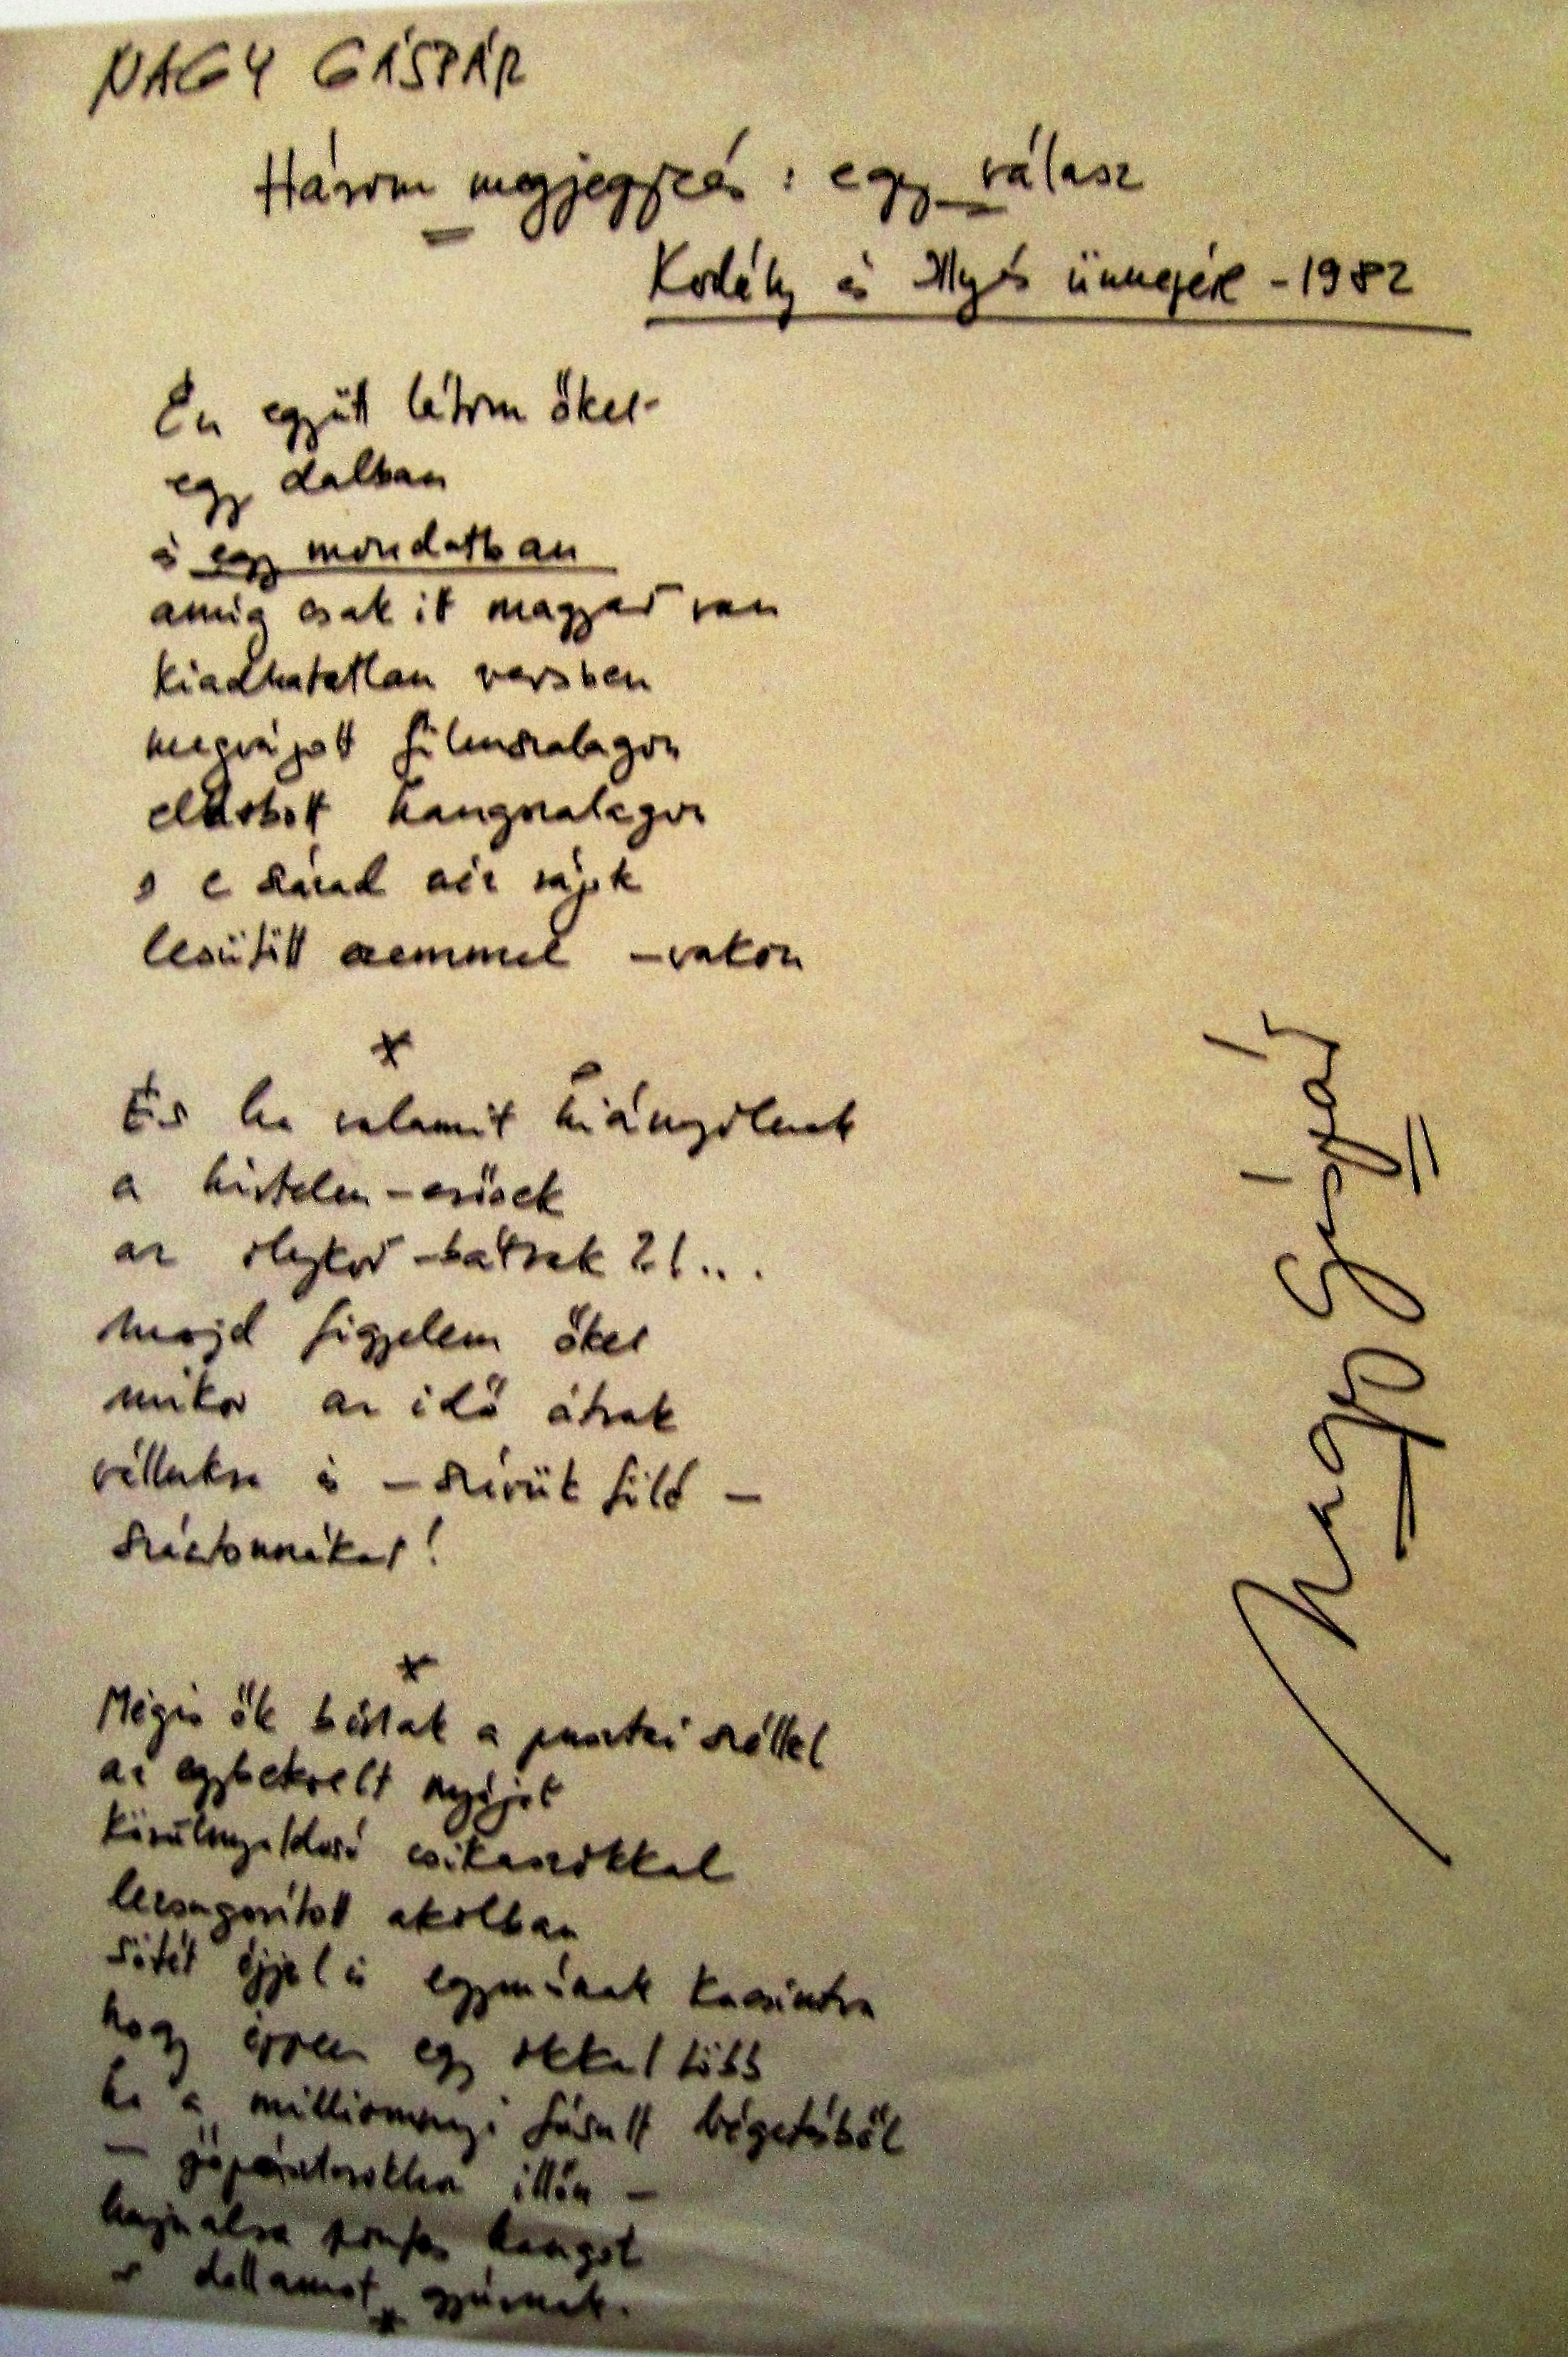 NAGY GÁSPÁR
Három megjegyzés : egy válasz
Kodály és Illyés ünnepére - 1982
Én együtt látom őket
egy dalban
és egy mondatban
amíg csak itt magyar van
kiadhatatlan versben
megvágott filmszalagon
eldobott hangszalagon
s e század néz rájok
lesütött szemmel – vakon
x
És ha valamit hiányolnak
a hirtelen-erősek
az olykor-bátrak?!...
majd figyelem őket
mikor az idő átrak
vállukra és – szívük fölé –
száztonnákat!
x
Mégis ők bírtak a pusztai széllel
az egybeterelt nyájat
körülnyaldosó csikaszokkal
lezsugorított akolban
sötét éjjel is egymásnak kacsintva
hogy éppen egy okkal több
ha a milliomnyi fásult bégetésből
– jópásztorokhoz illőn –
hajnalra pontos hangot
s dallamot gyúrnak.
x
Nagy Gáspár